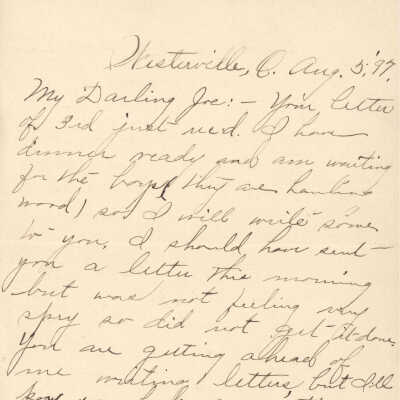 Westerville, O. Aug. 5, '97.
My Darling Joe: - Your letter
of 3rd just rec'd. I have
dinner ready and am waiting
for the boys (they are hauling
wood) so I will write some
to you. I should have sent
you a letter this morning
but was not feeling very
spry so did not get it done.
You are getting ahead of
me writing letters, but I'll